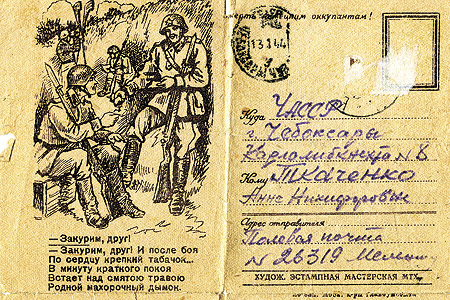 — Закурим, друг!
— Закурим, друг! И после боя
По сердцу крепкий табачок...
В минуту краткого покоя
Встает над смятою травою
Родной махорочный дымок.
оккупантам!
13 1 44
Куда ЧАССР
г. Чебоксары
Карла Либкнехта N 8
Кому Ткаченко
Анне Никифоровне
Адрес отправителя
Полевая почта
№ 26319
ХУДОЖ. ЭСТАМПНАЯ МАСТЕРСКАЯ МТХ